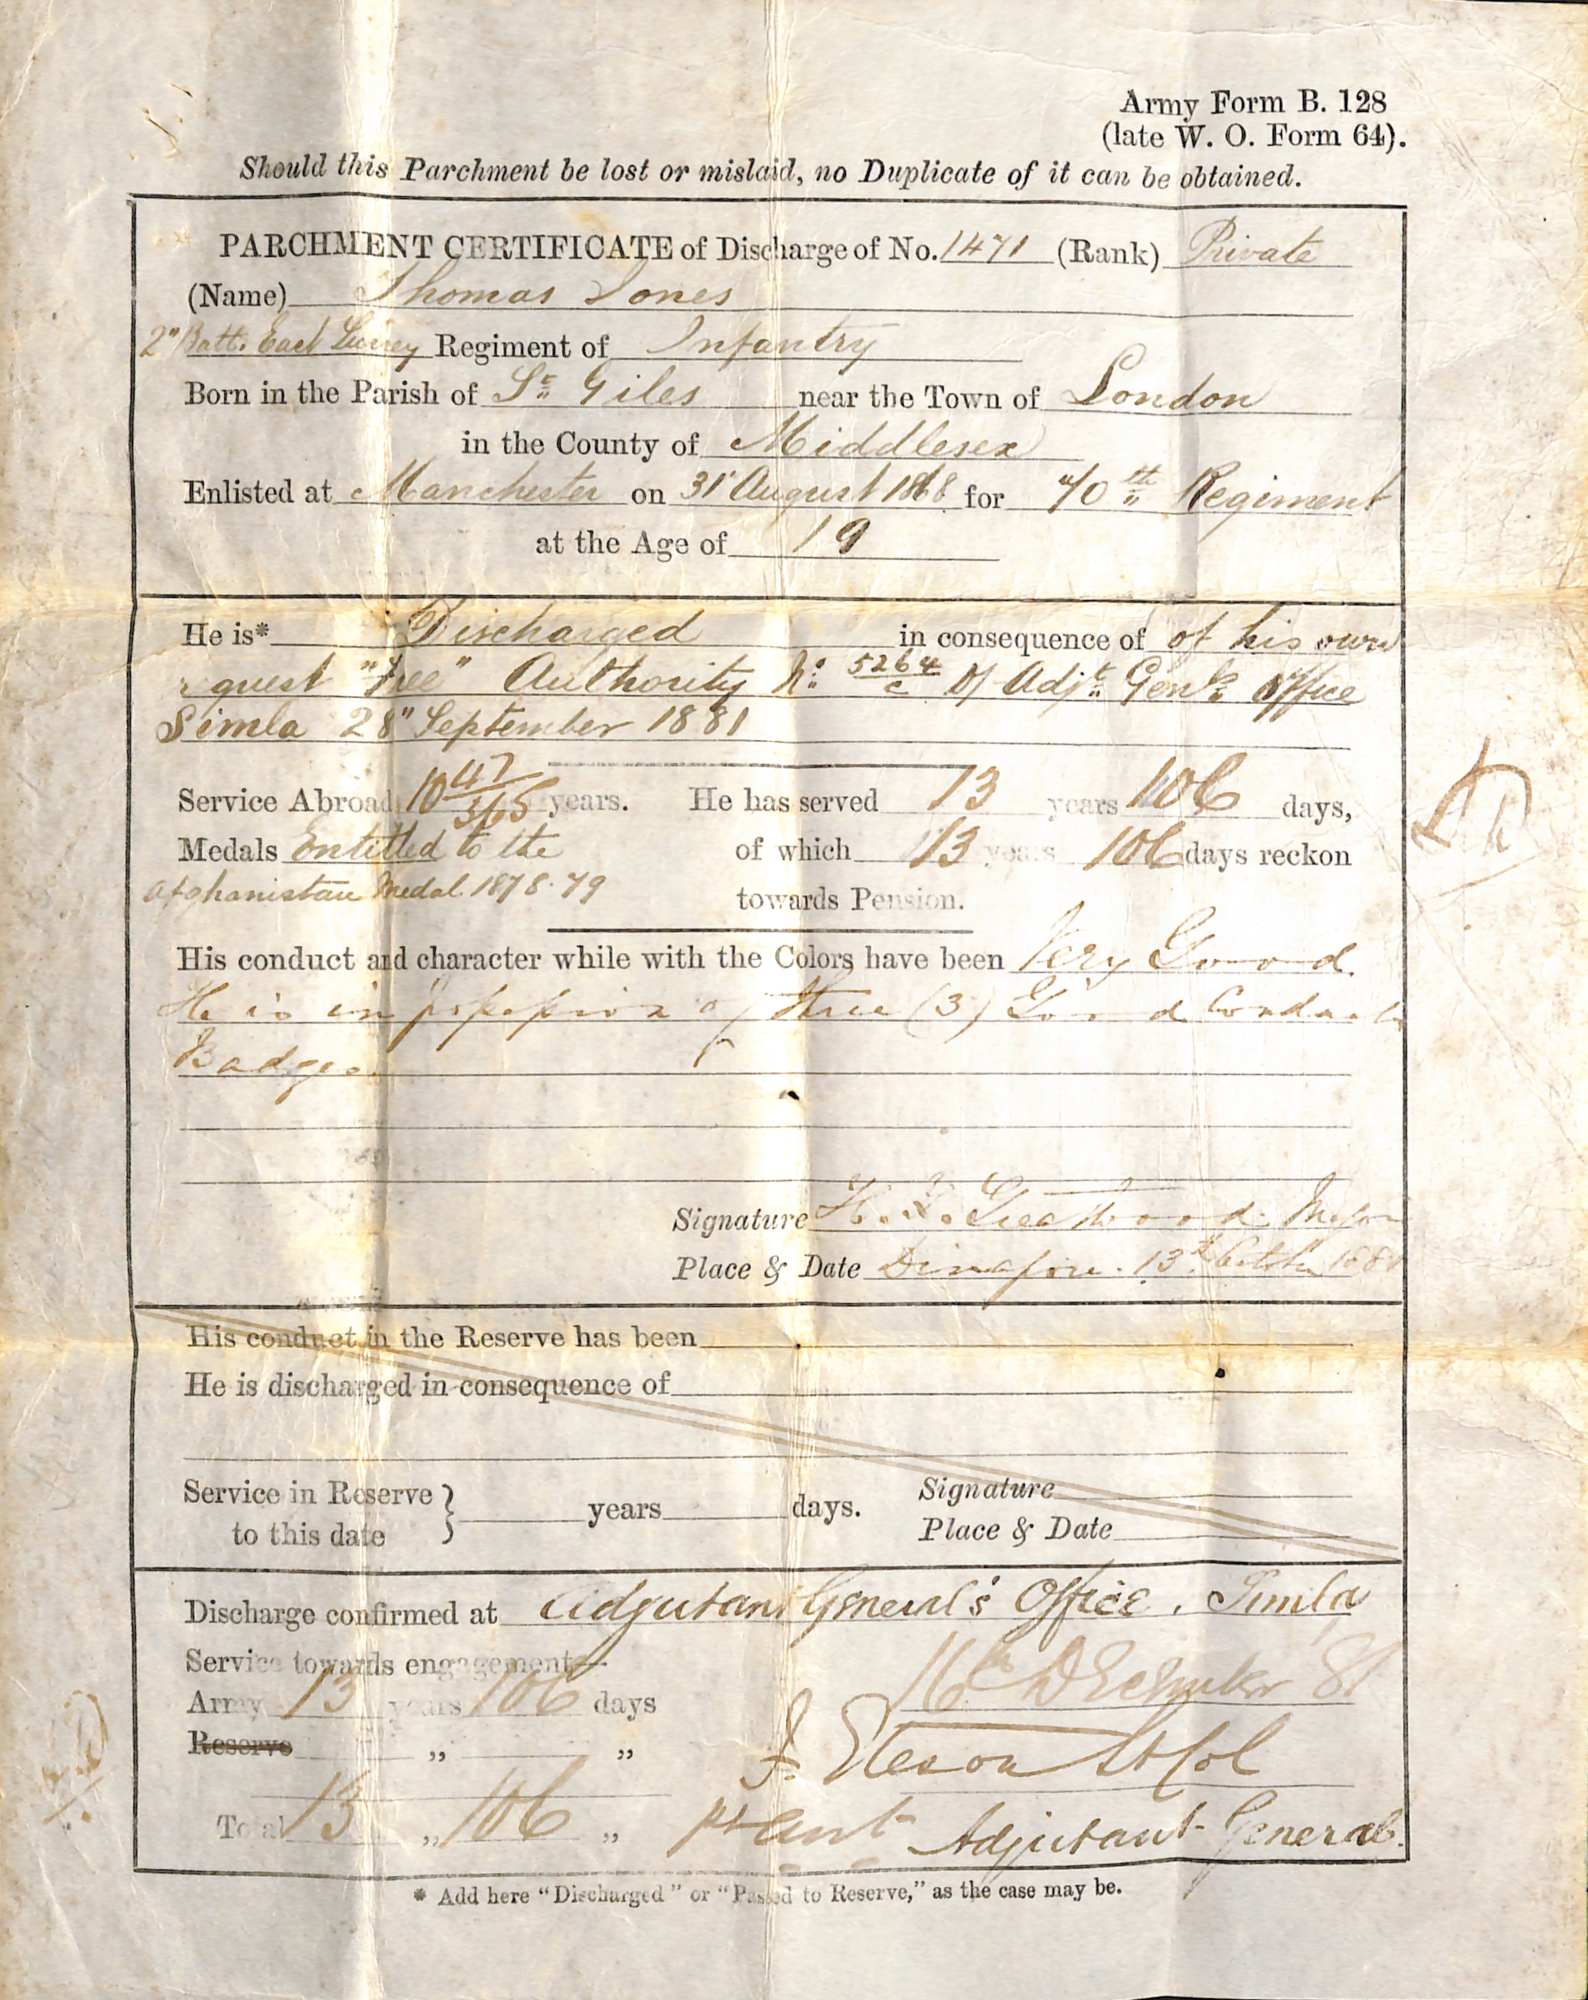 Army Form B. 128
(late W. O. Form 64).
Should this Parchment be lost or mislaid, no Duplicate of it can be obtained.
PARCHMENT CERTIFICATE of Discharge of No. 1471 (Rank) Private
(Name) Thomas Jones
2" Batt. East Surrey Regiment of Infantry
Born in the Parish of St Giles near the Town of London
in the County of Middlesex
Enlisted at Manchester on 31st August 1868 for 70th Regiment
at the Age of 19
He is* Discharged in consequence of of his own
request "Free" Authority No 5264/c Adjt Genls Office
Simla 28" September 1881
Service Abroad 10 47/365 years. He has served 13 years 106 days,
Medals Entitled to the of which 13 years 106 days reckon
Afghanistan Medal 1878-79 towards Pension.
His conduct and character while with the Colors have been Very Good.
He is in possession of three (3) Good Conduct
Badges
Signature Major
Place & Date Dinapore. 13th October 1881
His conduct in the Reserve has been
He is discharged in consequence of
Service in Reserve } years days. Signature
to this date Place & Date
Discharge confirmed at Adjutant General's Office, Simla
Service towards engagement—
Army 13 years 106 days 16th December 81
Reserve „ „ Lt Col
Total 13 „ 106 „ Adjutant General.
* Add here "Discharged" or "Passed to Reserve," as the case may be.